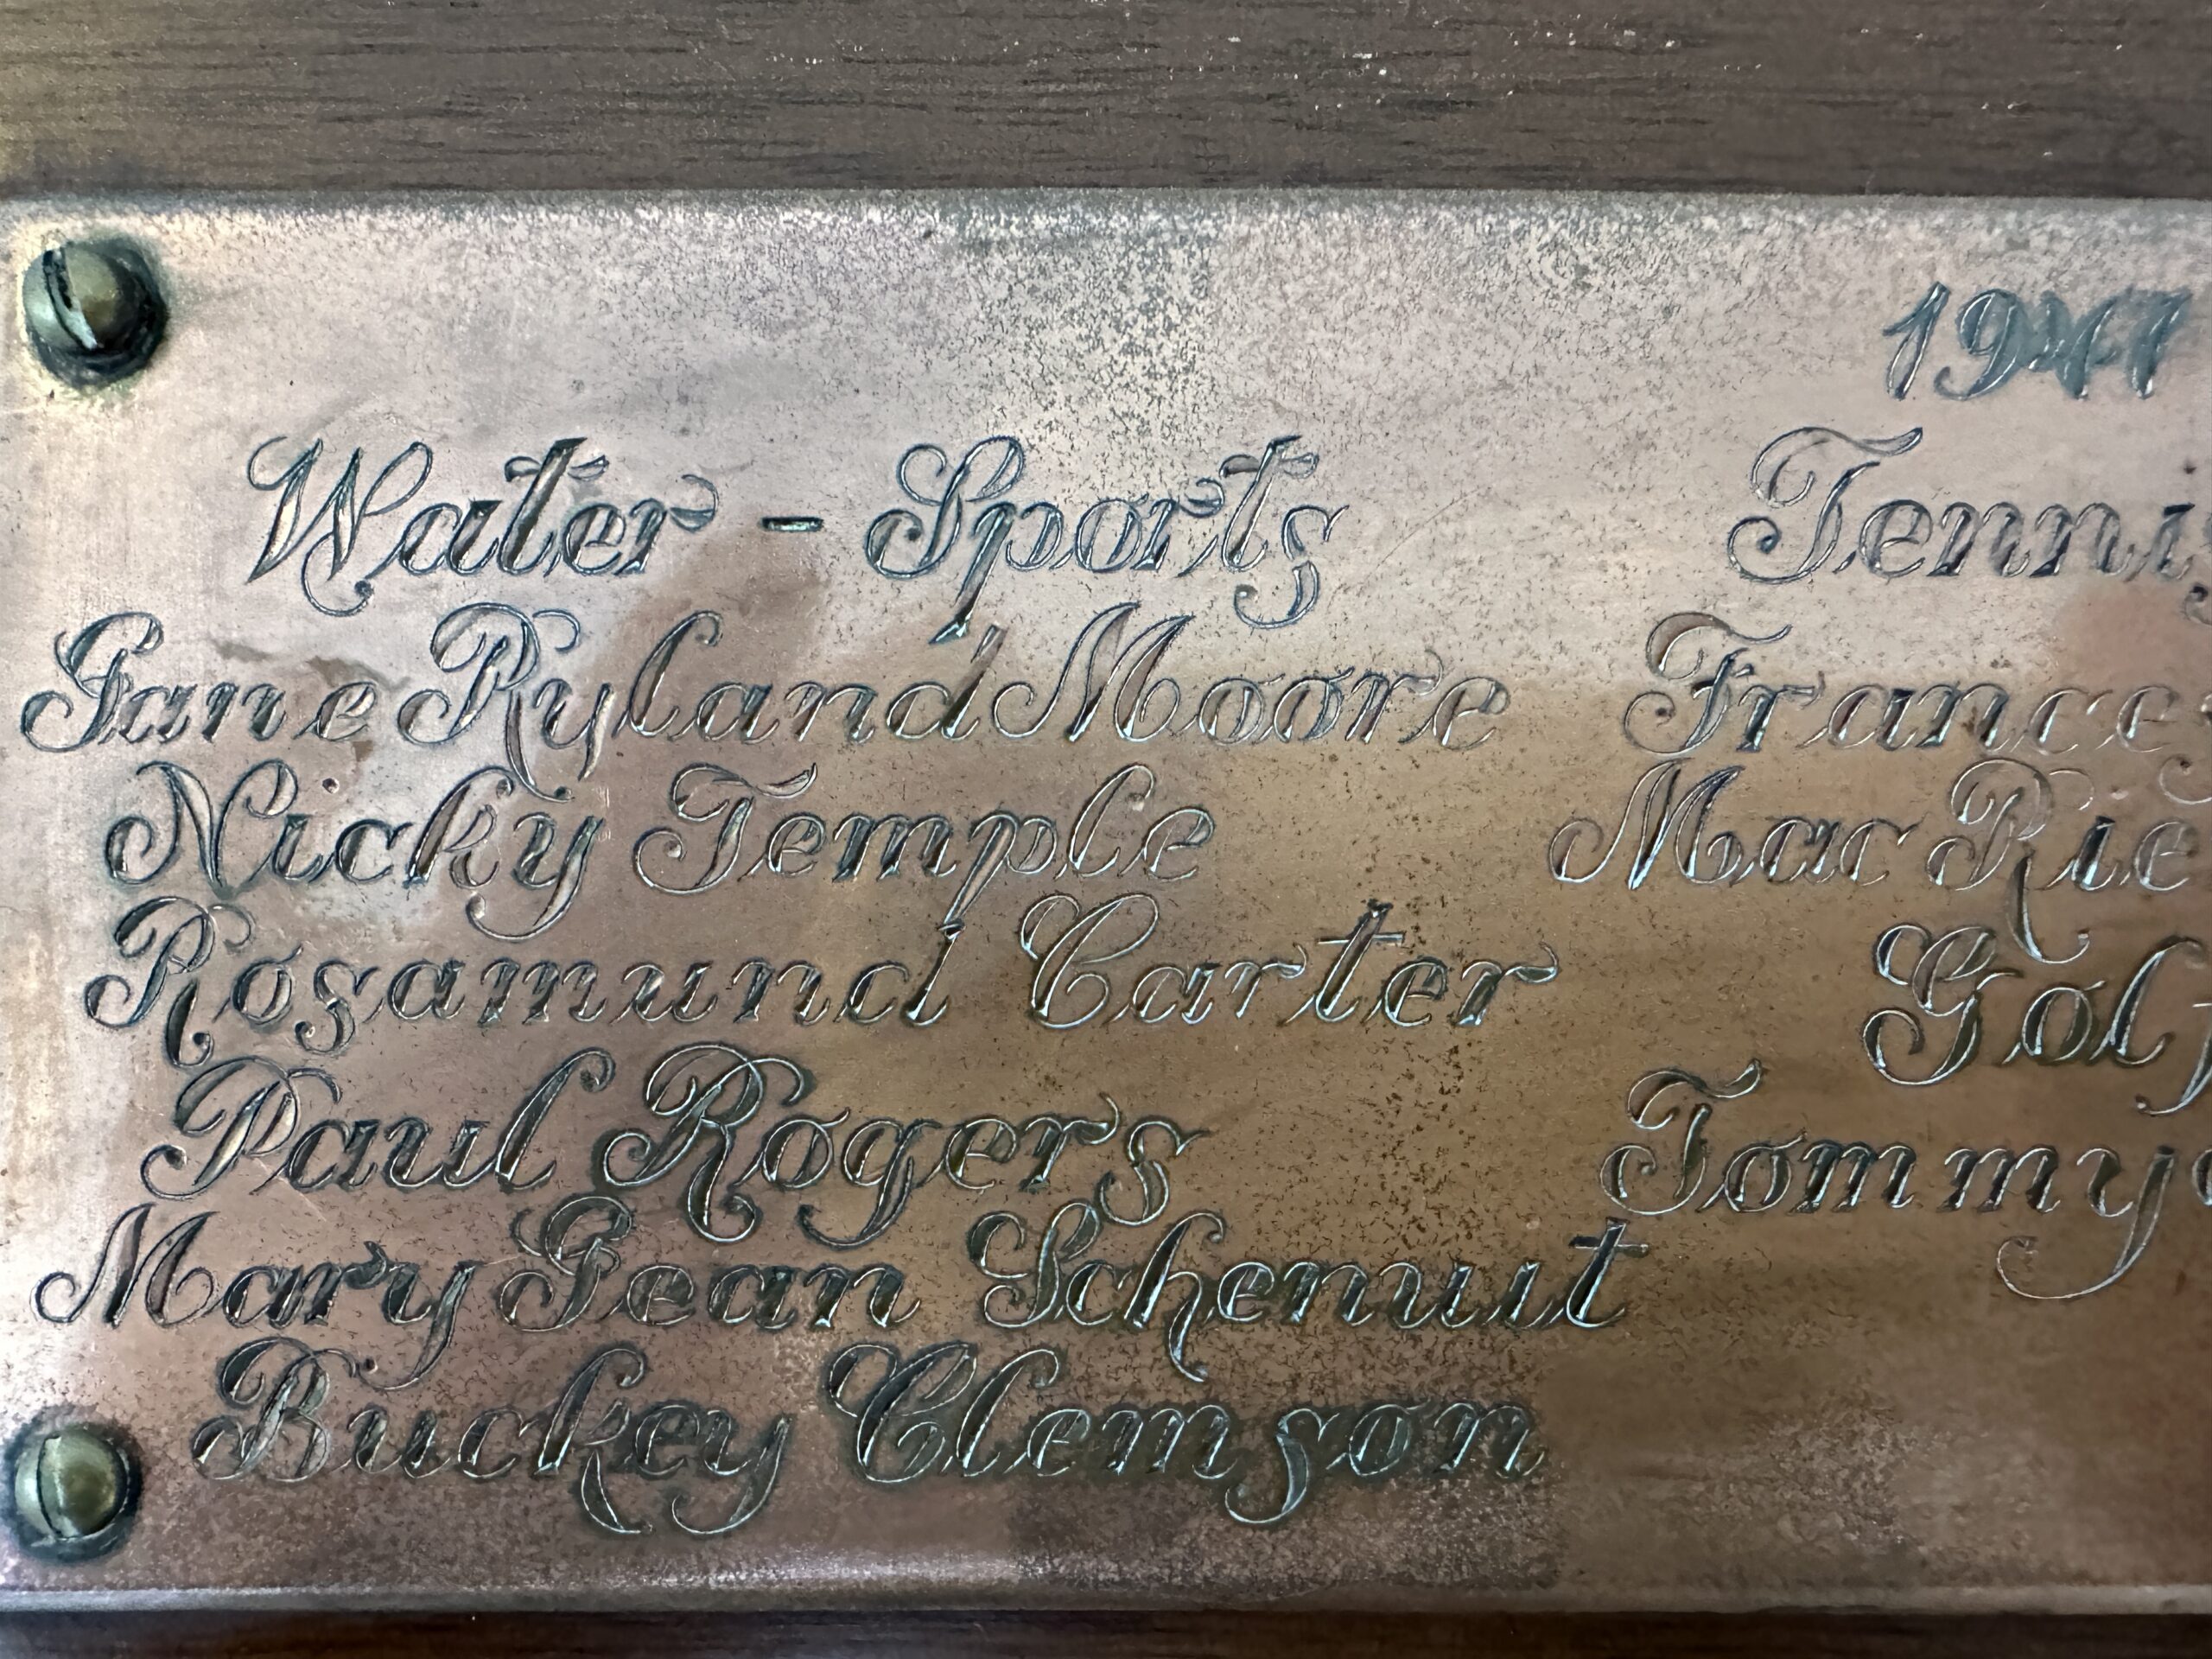 1947
Water - Sports
Jane Ryland Moore
Nicky Temple
Rosamund Carter
Paul Rogers
Mary Jean Schenuit
Buckey Clemson
Tennis
Frances
Mac Rie
Golf
Tommy